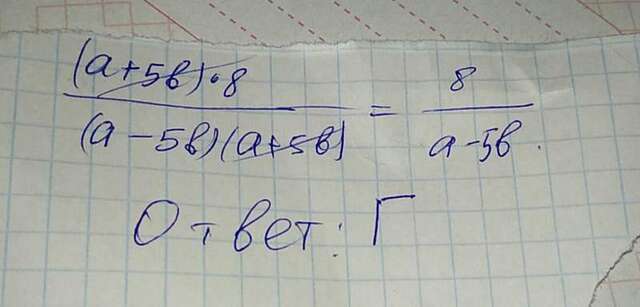 (a+5b)·8 / (a-5b)(a+5b) = 8 / a-5b.
Ответ: Г